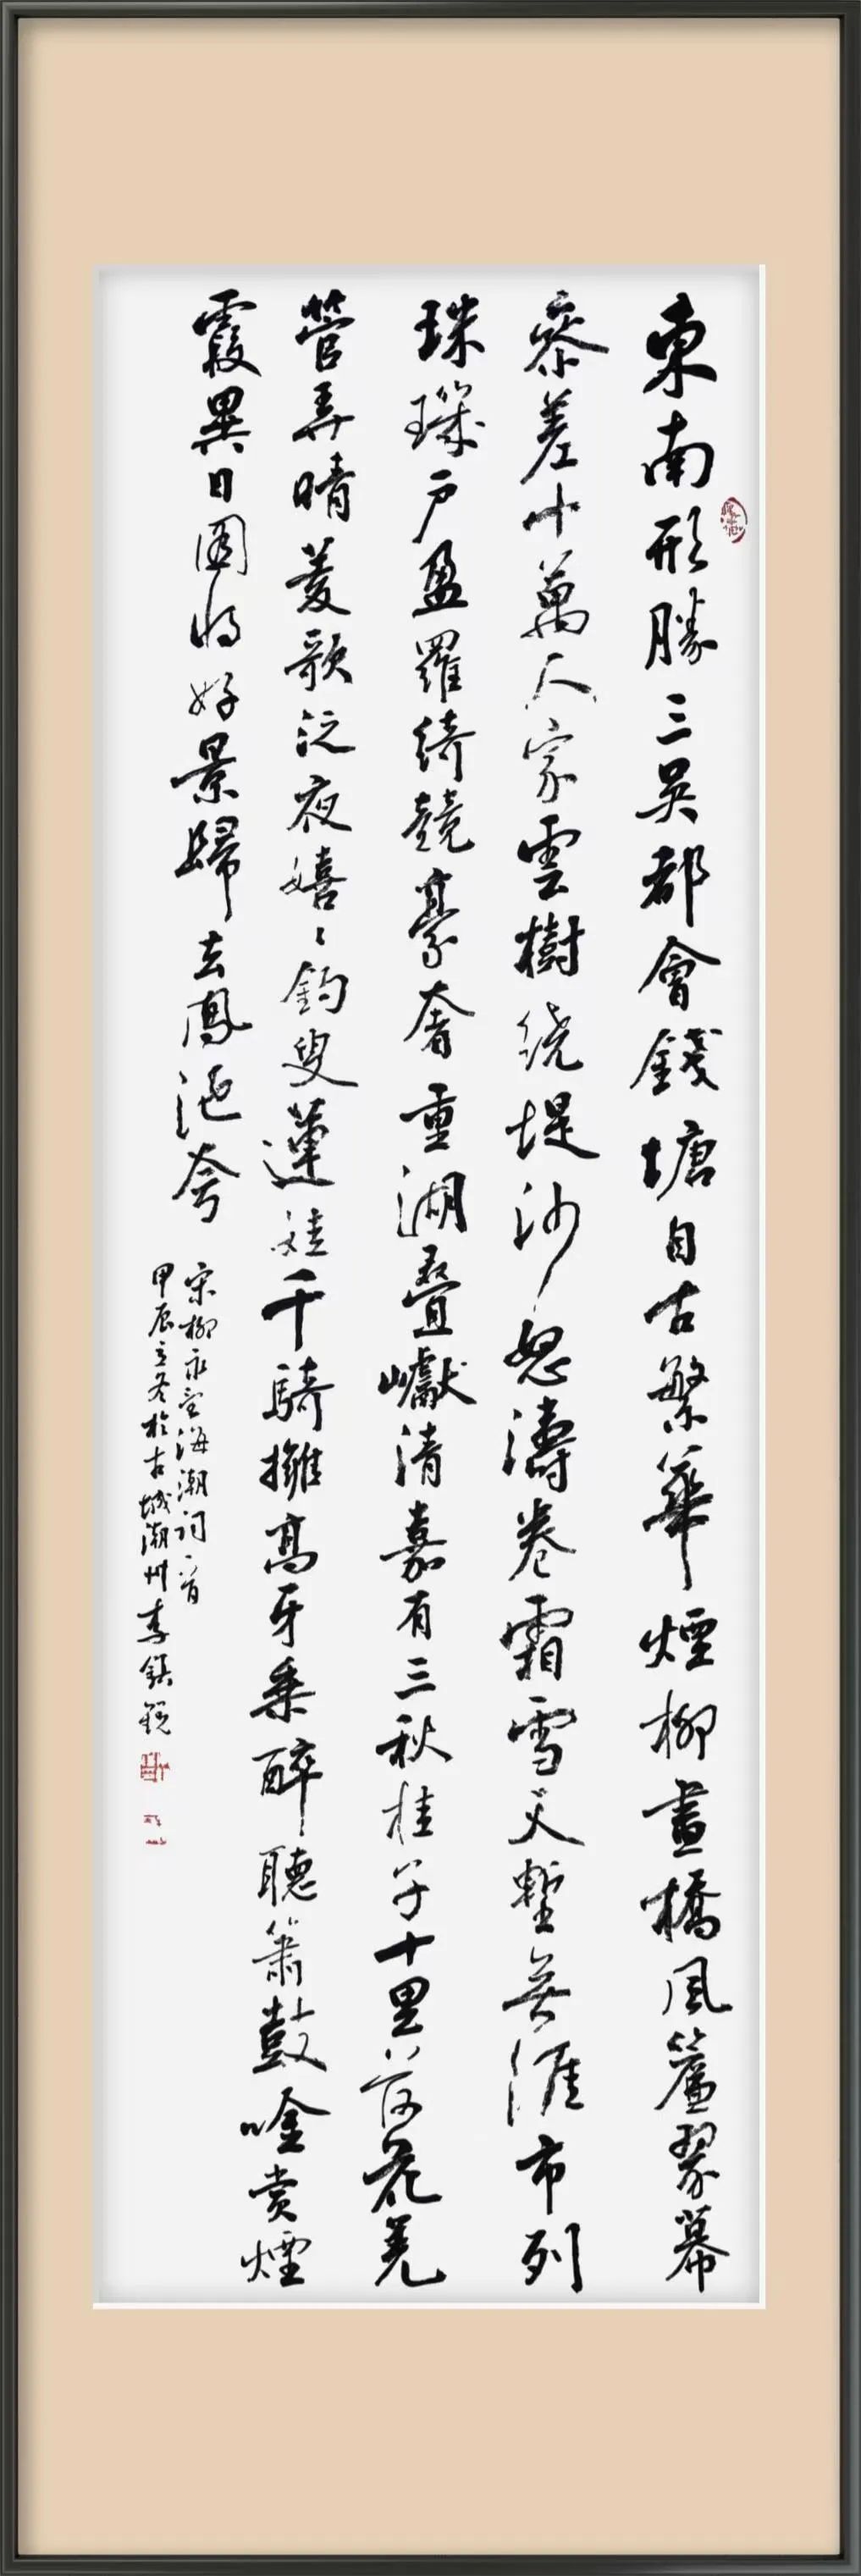 東南形勝三吳都會錢塘自古繁華煙柳畫橋風簾翠幕
參差十萬人家雲樹繞堤沙怒濤卷霜雪天塹無涯市列
珠璣戶盈羅綺競豪奢重湖疊巘清嘉有三秋桂子十里荷花羌
管弄晴菱歌泛夜嬉〻釣叟蓮娃千騎擁高牙乘醉聽簫鼓唫賞煙
霞異日圖將好景歸去鳳池夸
宋柳永望海潮詞一首
甲辰立冬於古城潮州李鎮銳